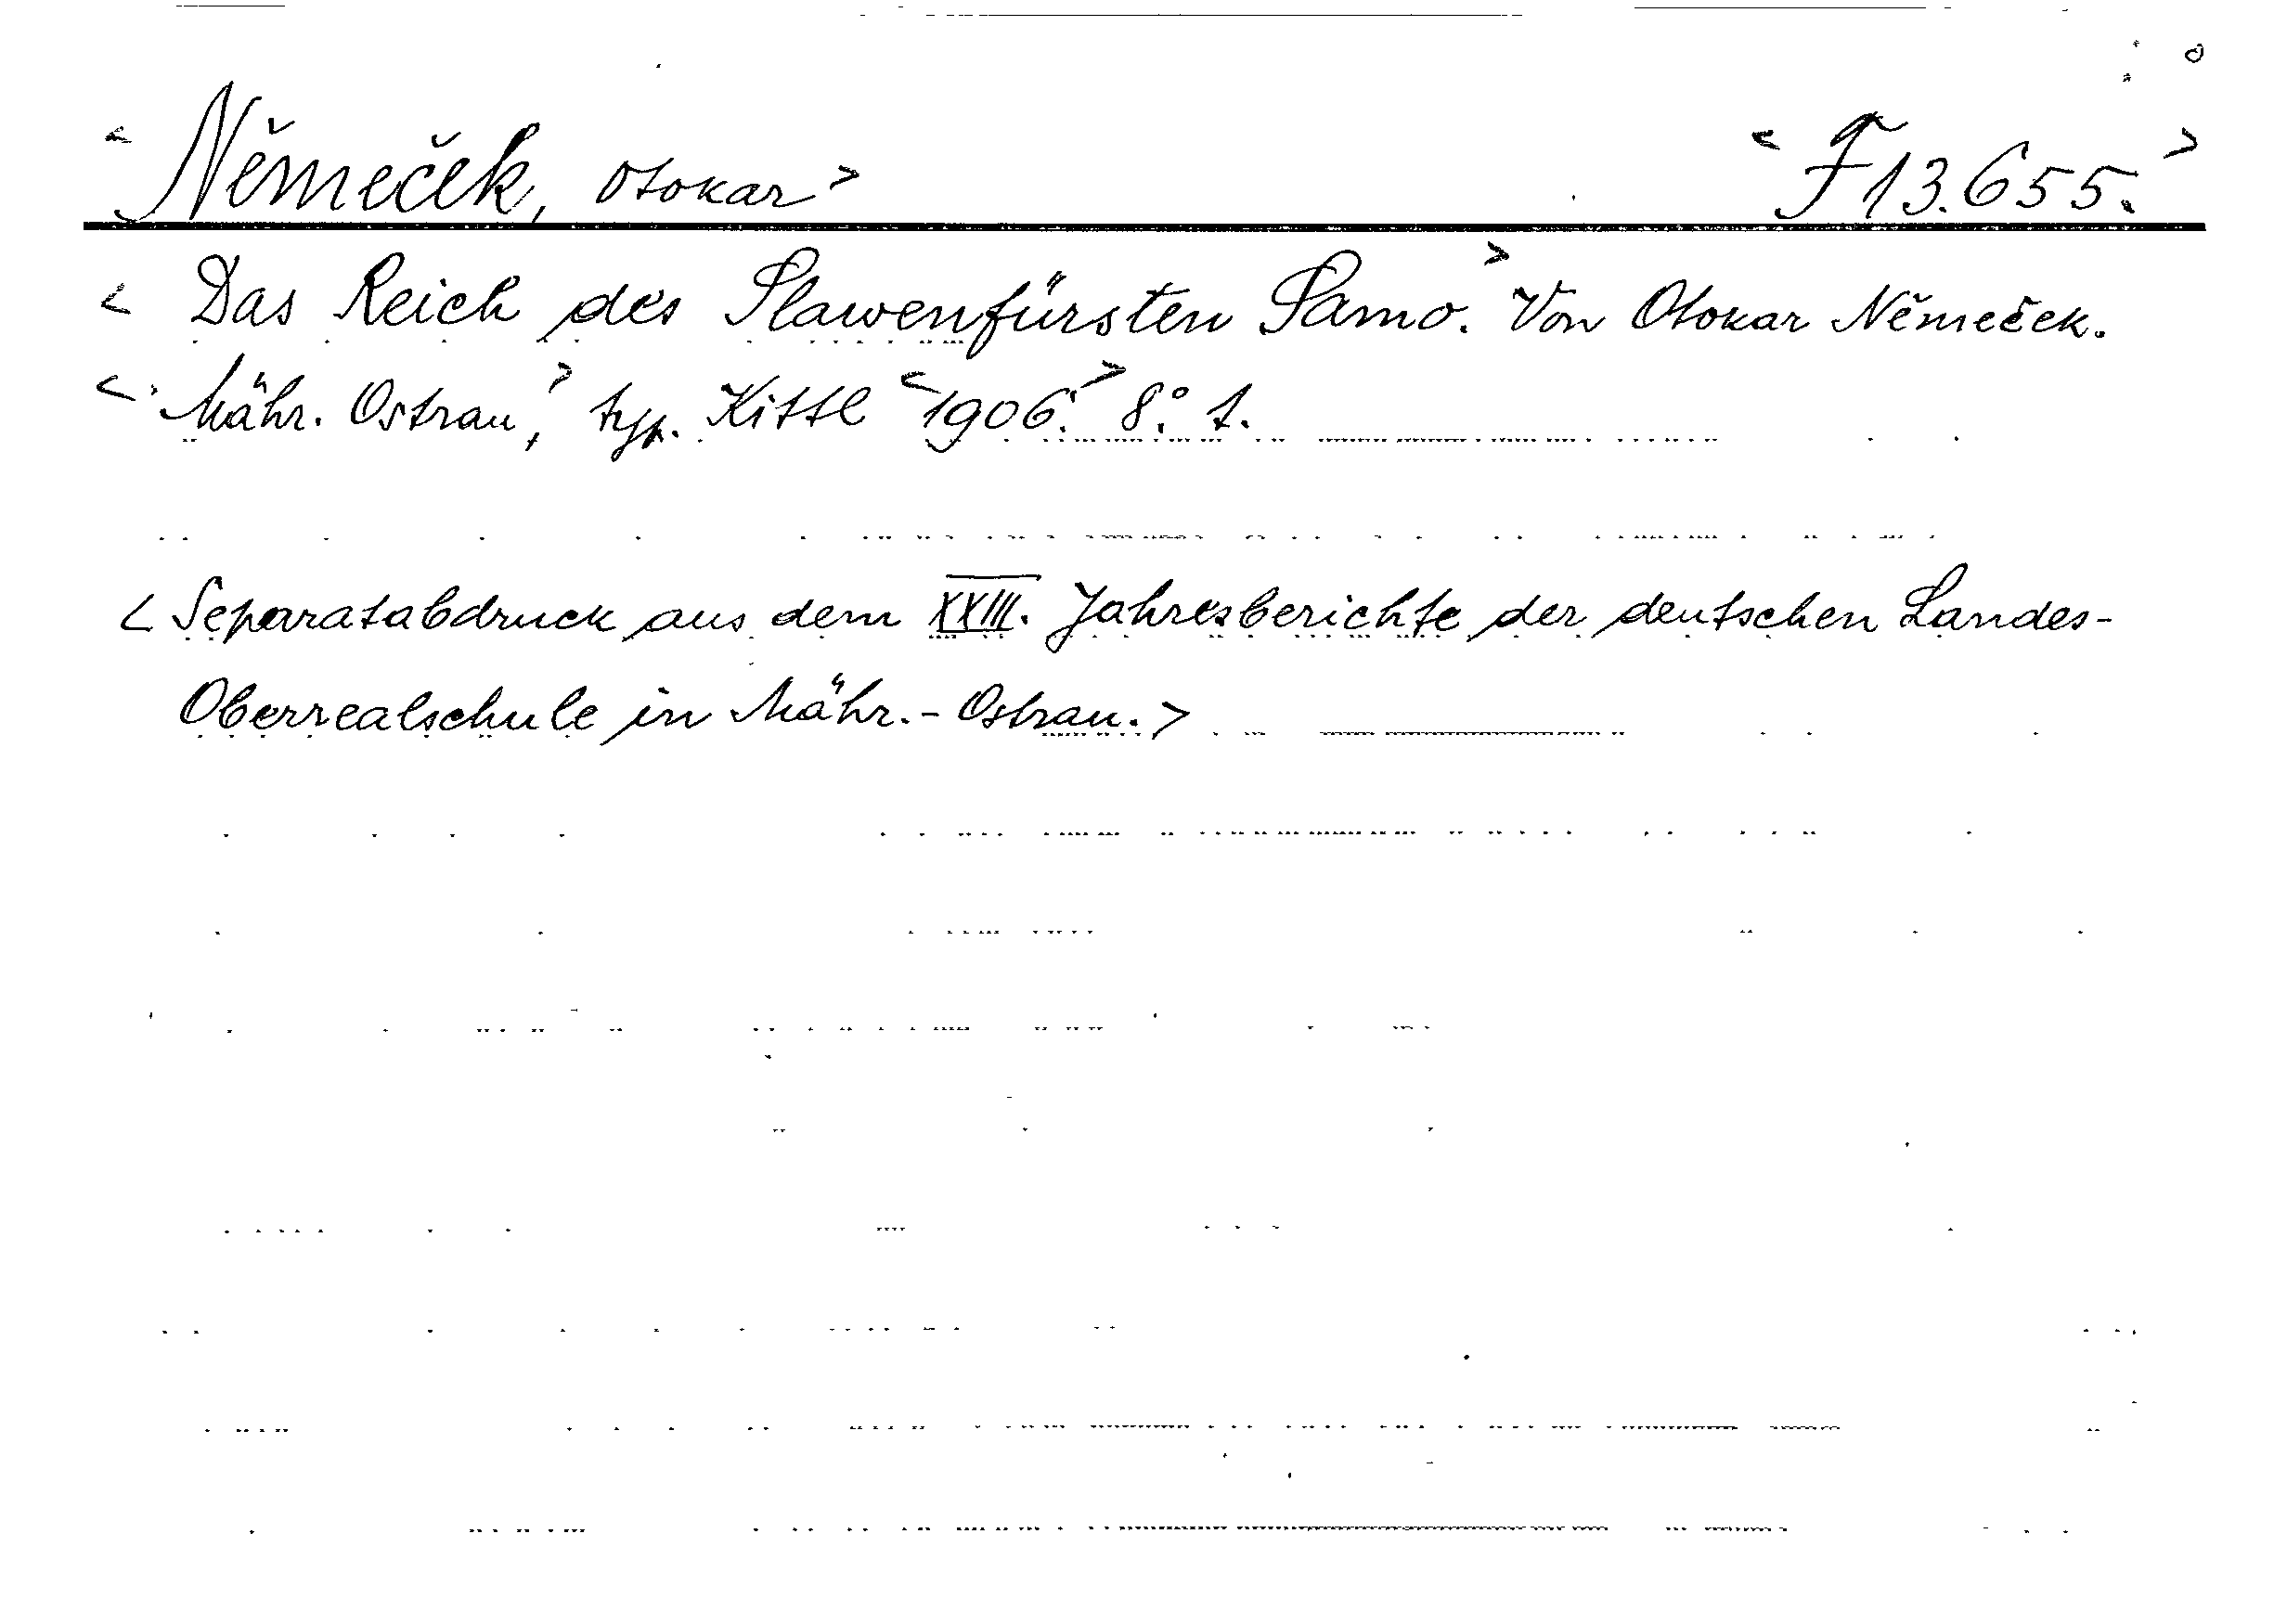 < Němeček, Otokar > < F 13.655. >
< Das Reich des Slawenfürsten Samo. > Von Otokar Němeček.
< Mähr. Ostrau, > typ. Kittl < 1906. > 8.° 1.
< Separatabdruck aus dem XXIII. Jahresberichte der deutschen Landes-
Oberrealschule in Mähr.- Ostrau. >